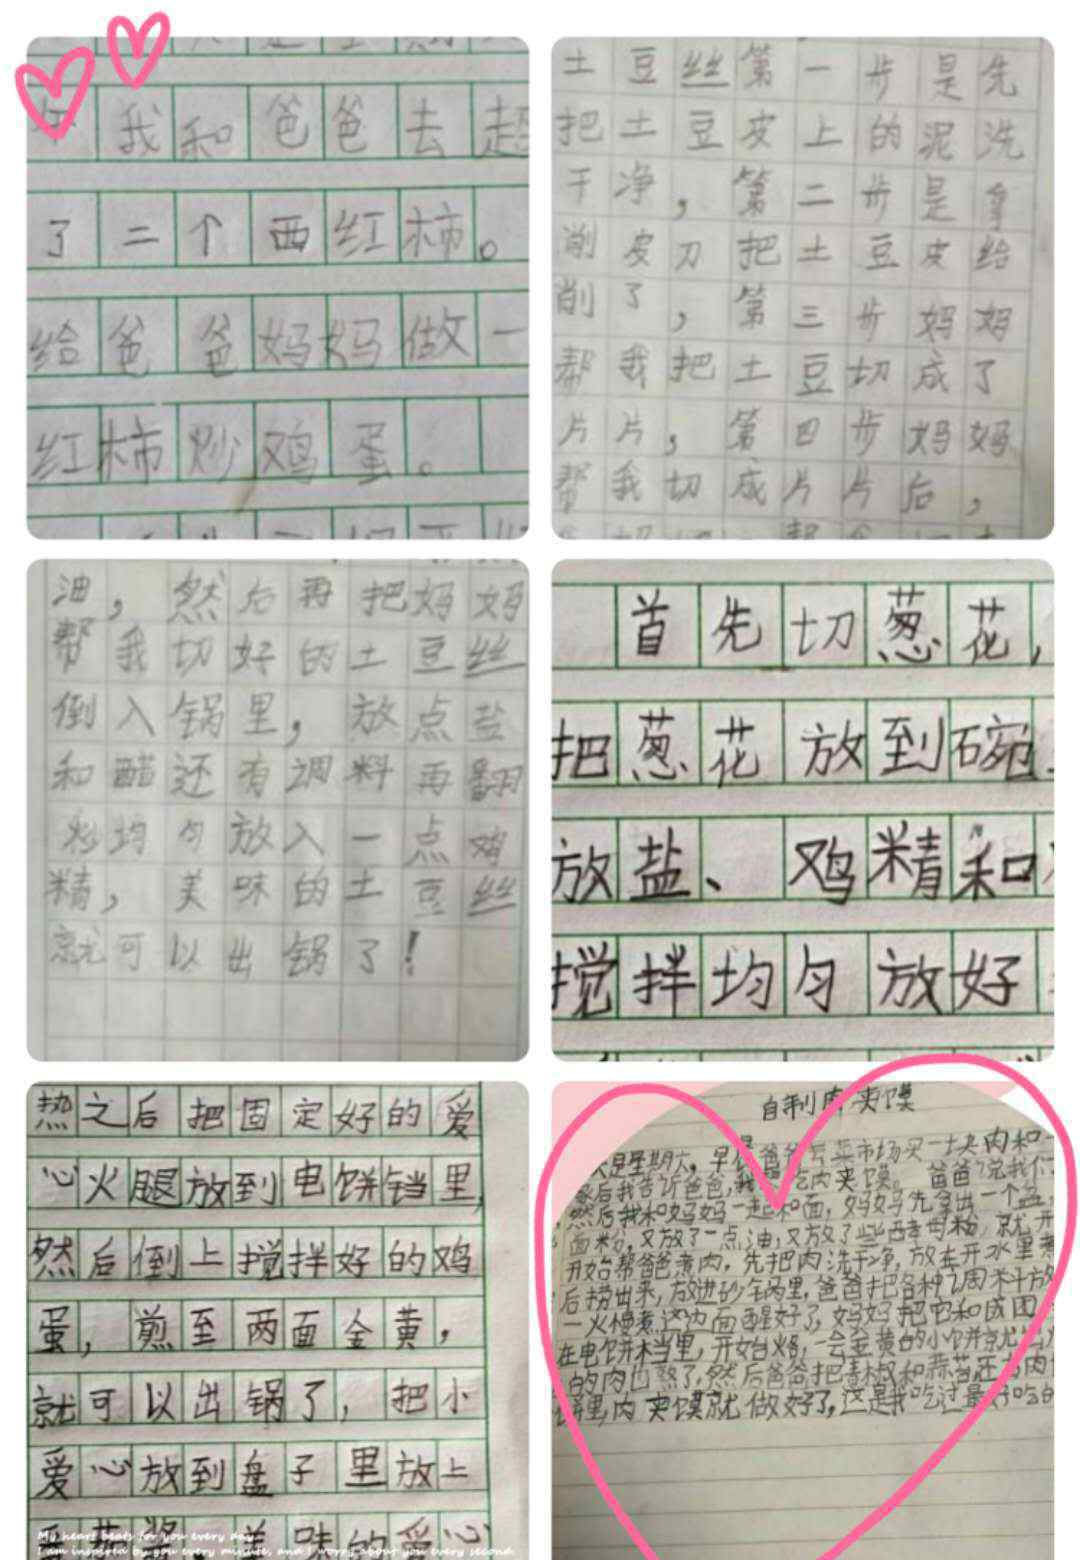 我和爸爸去超
了二个西红柿。
给爸爸妈妈做一
红柿炒鸡蛋。
土豆丝第一步是先
把土豆皮上的泥洗
干净，第二步是拿
削皮刀把土豆皮给
削了，第三步妈妈
帮我把土豆切成了
片片，第四步妈妈
帮我切成片片后，
油，然后再把妈妈
帮我切好的土豆丝
倒入锅里，放点盐
和醋还有调料再翻
炒均匀放入一点鸡
精，美味的土豆丝
就可以出锅了！
首先切葱花，
把葱花放到碗
放盐、鸡精和
搅拌均匀放好
热之后把固定好的爱
心火腿放到电饼铛里，
然后倒上搅拌好的鸡
蛋，煎至两面金黄，
就可以出锅了，把小
爱心放到盘子里放上
美味的爱心
My heart beats for you every day.
I am inspired by you every minute, and I worry about you every second.
自制肉夹馍
是星期六，早晨爸爸去菜市场买一块肉和一
后我告诉爸爸，我想吃肉夹馍。爸爸说我们
然后我和妈妈一起和面，妈妈先拿出一个盆，
面粉，又放了一点油，又放了些酵母粉，就开
开始帮爸爸煮肉，先把肉洗干净，放在开水里煮
后捞出来，放进砂锅里，爸爸把各种调料放
火慢煮，这边面醒好了，妈妈把它和成团
在电饼铛里，开始烙，一会金黄的小饼就出
的肉也熟了，然后爸爸把青椒和蒜苔还有肉
饼里，肉夹馍就做好了，这是我吃过最好吃的